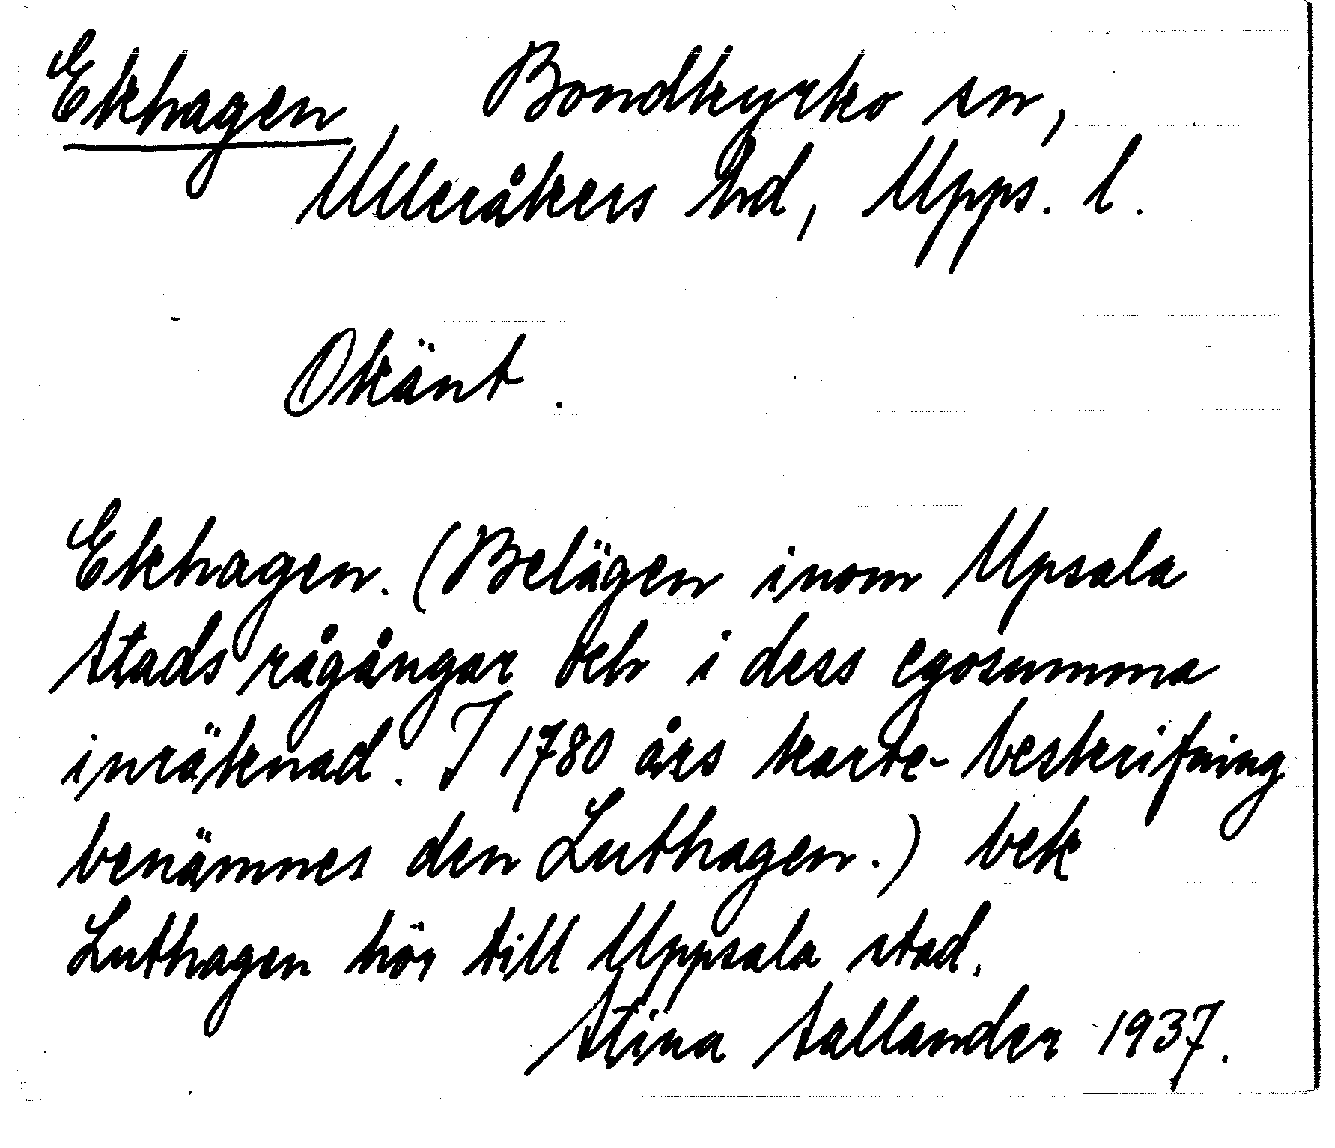 Ekhagen, Bondkyrko sn,
Ulleråkers hd, Upps. l.
Okänt.
Ekhagen. (Belägen inom Upsala
Stads rågångar och i dess egosumma
inräknad. I 1780 års karte-beskrifning
benämnes den Luthagen.) bek
Luthagen hör till Uppsala stad.
Stina Sallander 1937.